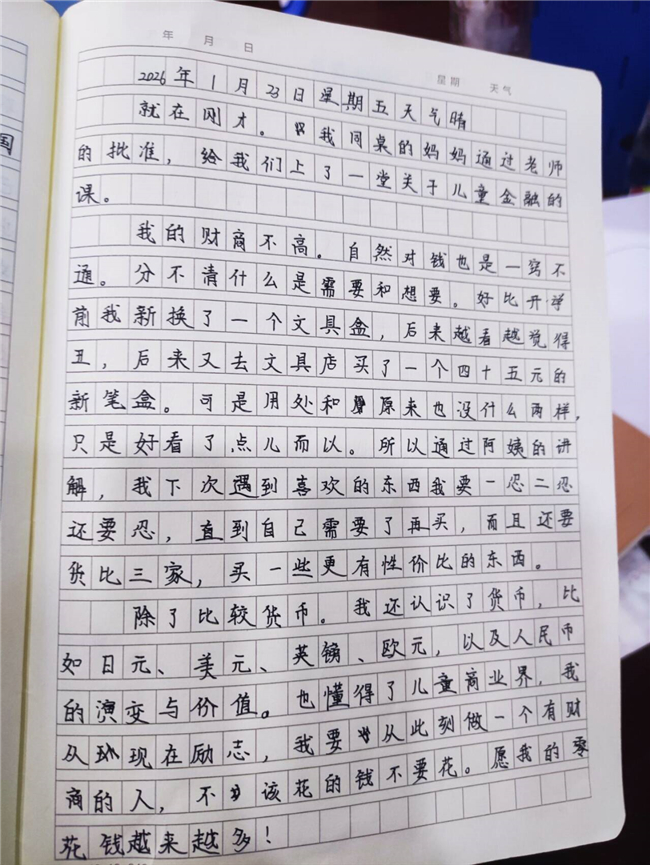 年 月 日
星期 天气
国
2026年1月23日星期五天气晴
就在刚才。我同桌的妈妈通过老师
的批准，给我们上了一堂关于儿童金融的
课。
我的财商不高。自然对钱也是一窍不
通。分不清什么是需要和想要。好比开学
前我新换了一个文具盒，后来越看越觉得
丑，后来又去文具店买了一个四十五元的
新笔盒。可是用处和原来也没什么两样，
只是好看了点儿而以。所以通过阿姨的讲
解，我下次遇到喜欢的东西我要一忍二忍
还要忍，直到自己需要了再买，而且还要
货比三家，买一些更有性价比的东西。
除了比较货币。我还认识了货币，比
如日元、美元、英镑、欧元，以及人民币
的演变与价值。也懂得了儿童商业界，我
从现在励志，我要从此刻做一个有财
商的人，不该花的钱不要花。愿我的零
花钱越来越多！